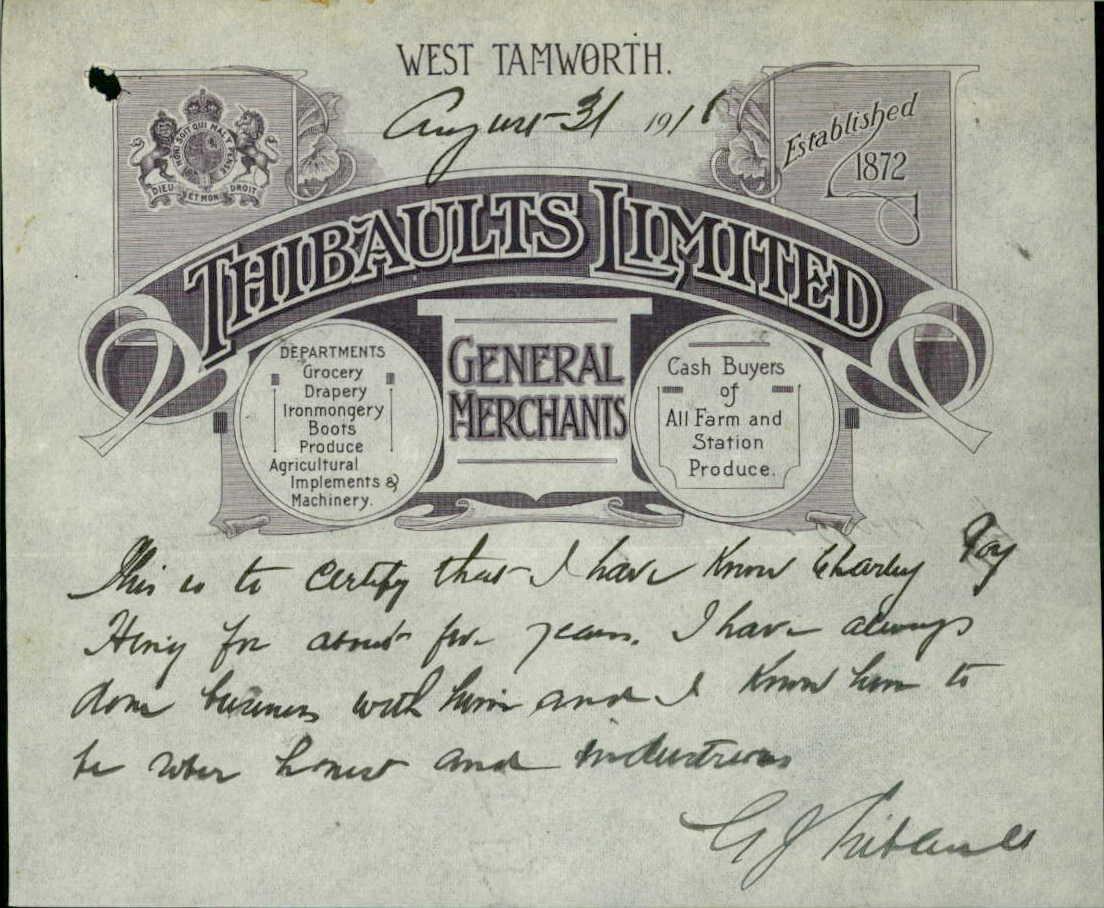 WEST TAMWORTH.
August 31 1916
HONI SOIT QUI MAL Y PENSE
DIEU ET MON DROIT
Established
1872
THIBAULTS LIMITED
DEPARTMENTS
Grocery
Drapery
Ironmongery
Boots
Produce
Agricultural
Implements &
Machinery.
GENERAL
MERCHANTS
Cash Buyers
of
All Farm and
Station
Produce.
This is to certify that I have know Charley
for about five years. I have always
done business with him and I know him to
be sober honest and industrious
G J Thibault